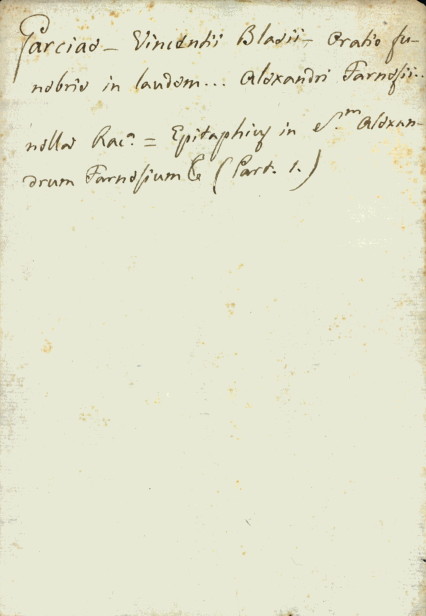 Garciae - Vincentii Blasii - oratio fu-
nebris in laudem... Alexandri Farnesii..
nella Rac.a = Epitaphius in Alexan-
drum Farnesium & (Part. 1.)